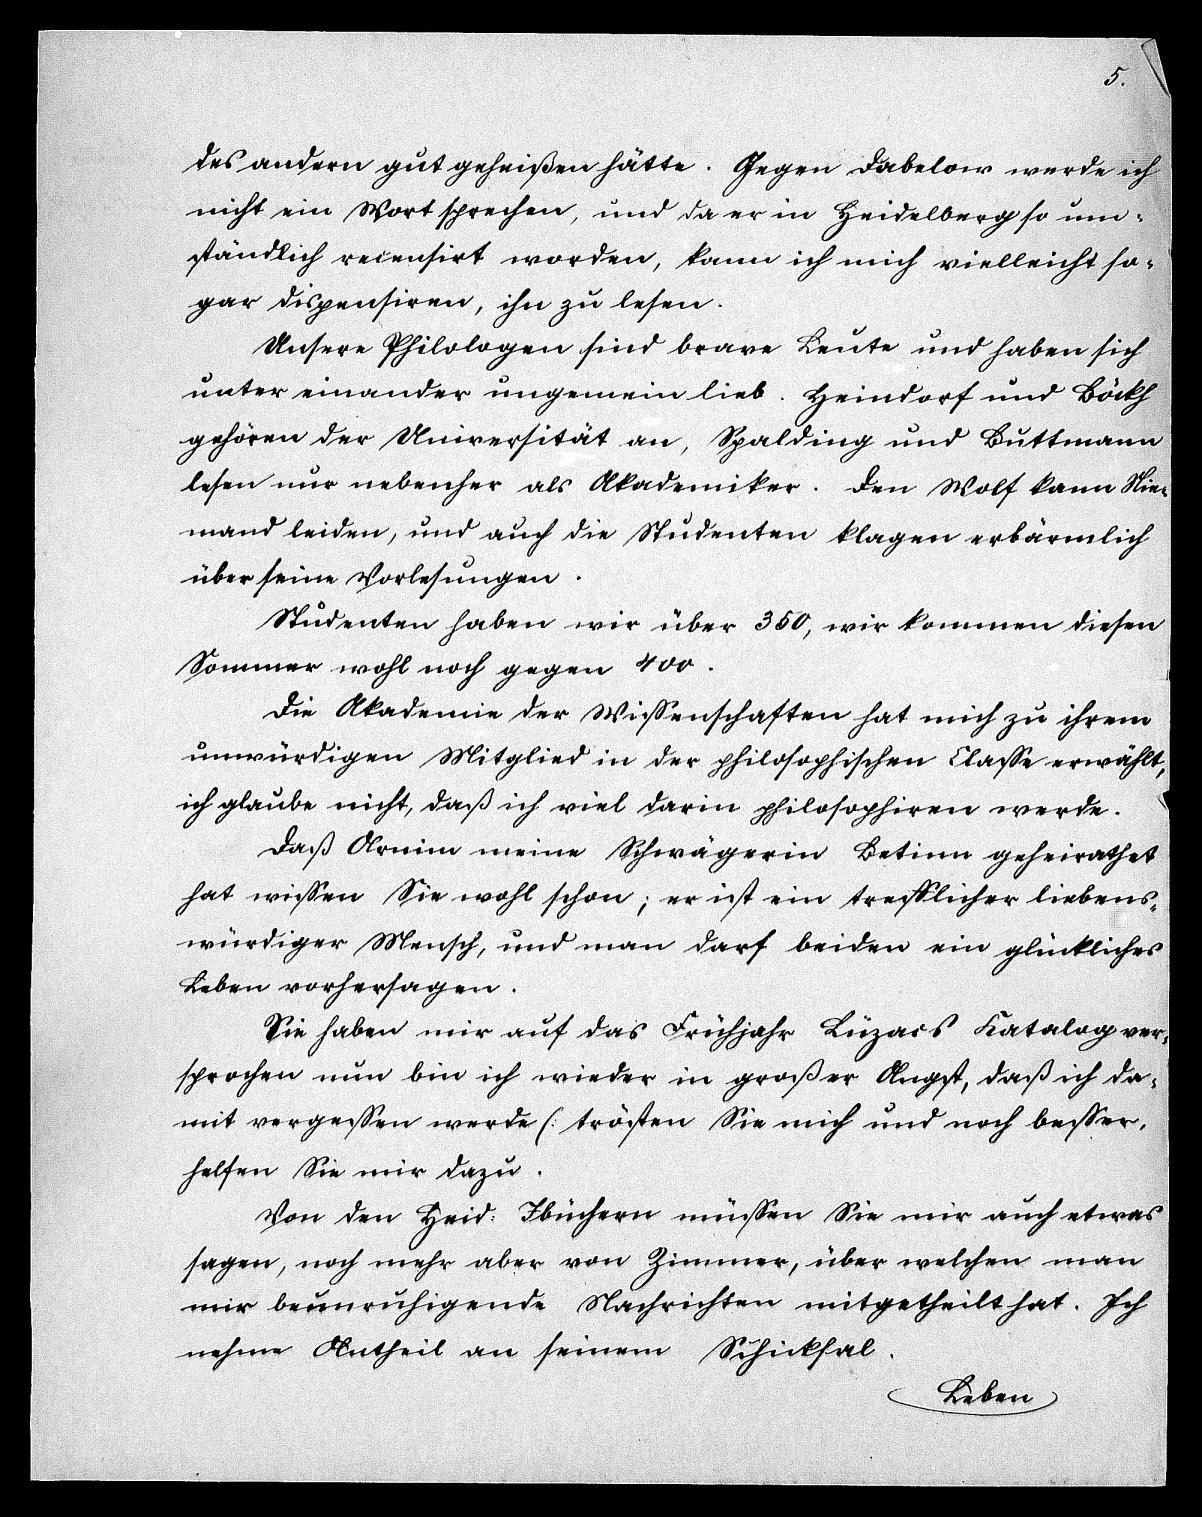 5.
des andern gut geheißen hätte. Gegen Dabelow werde ich
nicht ein Wort sprechen, und da er in Heidelberg so um-
ständlich recensirt worden, kann ich mich vielleicht so-
gar dispensiren, ihn zu lesen.
Unsere Philologen sind brave Leute und haben sich
unter einander ungemein lieb. Heindorf und Böckh
gehören der Universität an, Spalding und Buttmann
lesen nur nebenher als Akademiker. Den Wolf kann Nie-
mand leiden, und auch die Studenten klagen erbärmlich
über seine Vorlesungen.
Studenten haben wir über 350, wir kommen diesen
Sommer wohl noch gegen 400.
Die Akademie der Wissenschaften hat mich zu ihrem
unwürdigen Mitglied in der philosophischen Classe erwählt,
ich glaube nicht, daß ich viel darin philosophiren werde.
Daß Arnim meine Schwägerin Betinn geheirathet
hat wissen Sie wohl schon; er ist ein trefflicher liebens-
würdiger Mensch, und man darf beiden ein glückliches
Leben vorhersagen.
Sie haben mir auf das Frühjahr Lüzacs Katalog ver-
sprochen nun bin ich wieder in großer Angst, daß ich da-
mit vergessen werde (: trösten Sie mich und noch besser,
helfen Sie mir dazu.
Von den Heid: Jbüchern müssen Sie mir auch etwas
sagen, noch mehr aber von Zimmer, über welchen man
mir beunruhigende Nachrichten mitgetheilt hat. Ich
nehme Antheil an seinem Schicksal.
Leben